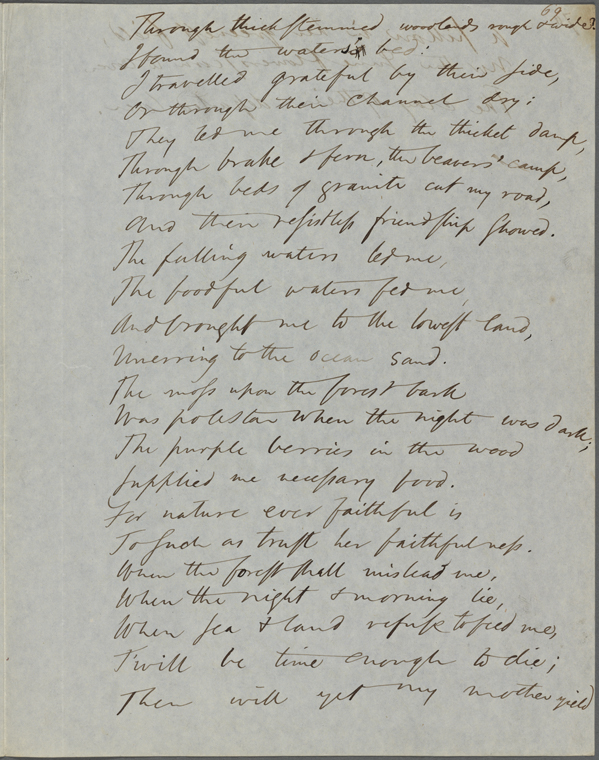 69
Through thick stemmed woodlands rough & wide.
I found the waters' bed:
I travelled grateful by their side,
Or through their channel dry;
They led me through the thicket damp,
Through brake & fern, the beavers' camp,
Through beds of granite cut my road,
And their resistless friendship showed.
The falling waters led me,
The foodful waters fed me,
And brought me to the lowest land,
Unerring to the ocean sand.
The moss upon the forest bark
Was polestar when the night was dark;
The purple berries in the wood
Supplied me necessary food.
For nature ever faithful is
To such as trust her faithfulness.
When the forest shall mislead me,
When the night & morning lie,
When sea & land refuse to feed me,
T'will be time enough to die;
Then will yet my mother yield